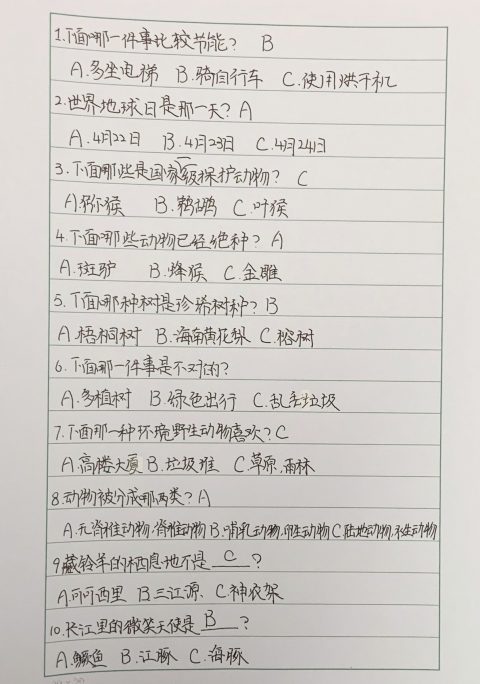 1.下面哪一件事比较节能? B
A.多坐电梯 B.骑自行车 C.使用烘干机
2.世界地球日是那一天? A
A.4月22日 B.4月23日 C.4月24日
3.下面哪些是国家一级保护动物? C
A.猕猴 B.鹈鹕 C.叶猴
4.下面哪些动物已经绝种? A
A.斑驴 B.烽猴 C.金雕
5.下面哪种树是珍稀树种? B
A.梧桐树 B.海南黄花梨 C.榕树
6.下面那一件事是不对的?
A.多植树 B.绿色出行 C.乱丢垃圾
7.下面那一种环境野生动物喜欢? C
A.高楼大厦 B.垃圾堆 C.草原,雨林
8.动物被分成哪两类? A
A.无脊椎动物,脊椎动物 B.哺乳动物,卵生动物 C.陆地动物,水生动物
9.藏铃羊的栖息地不是 C ?
A.可可西里 B三江源、C.神农架
10.长江里的微笑天使是 B ?
A.鳜鱼 B.江豚 C.海豚